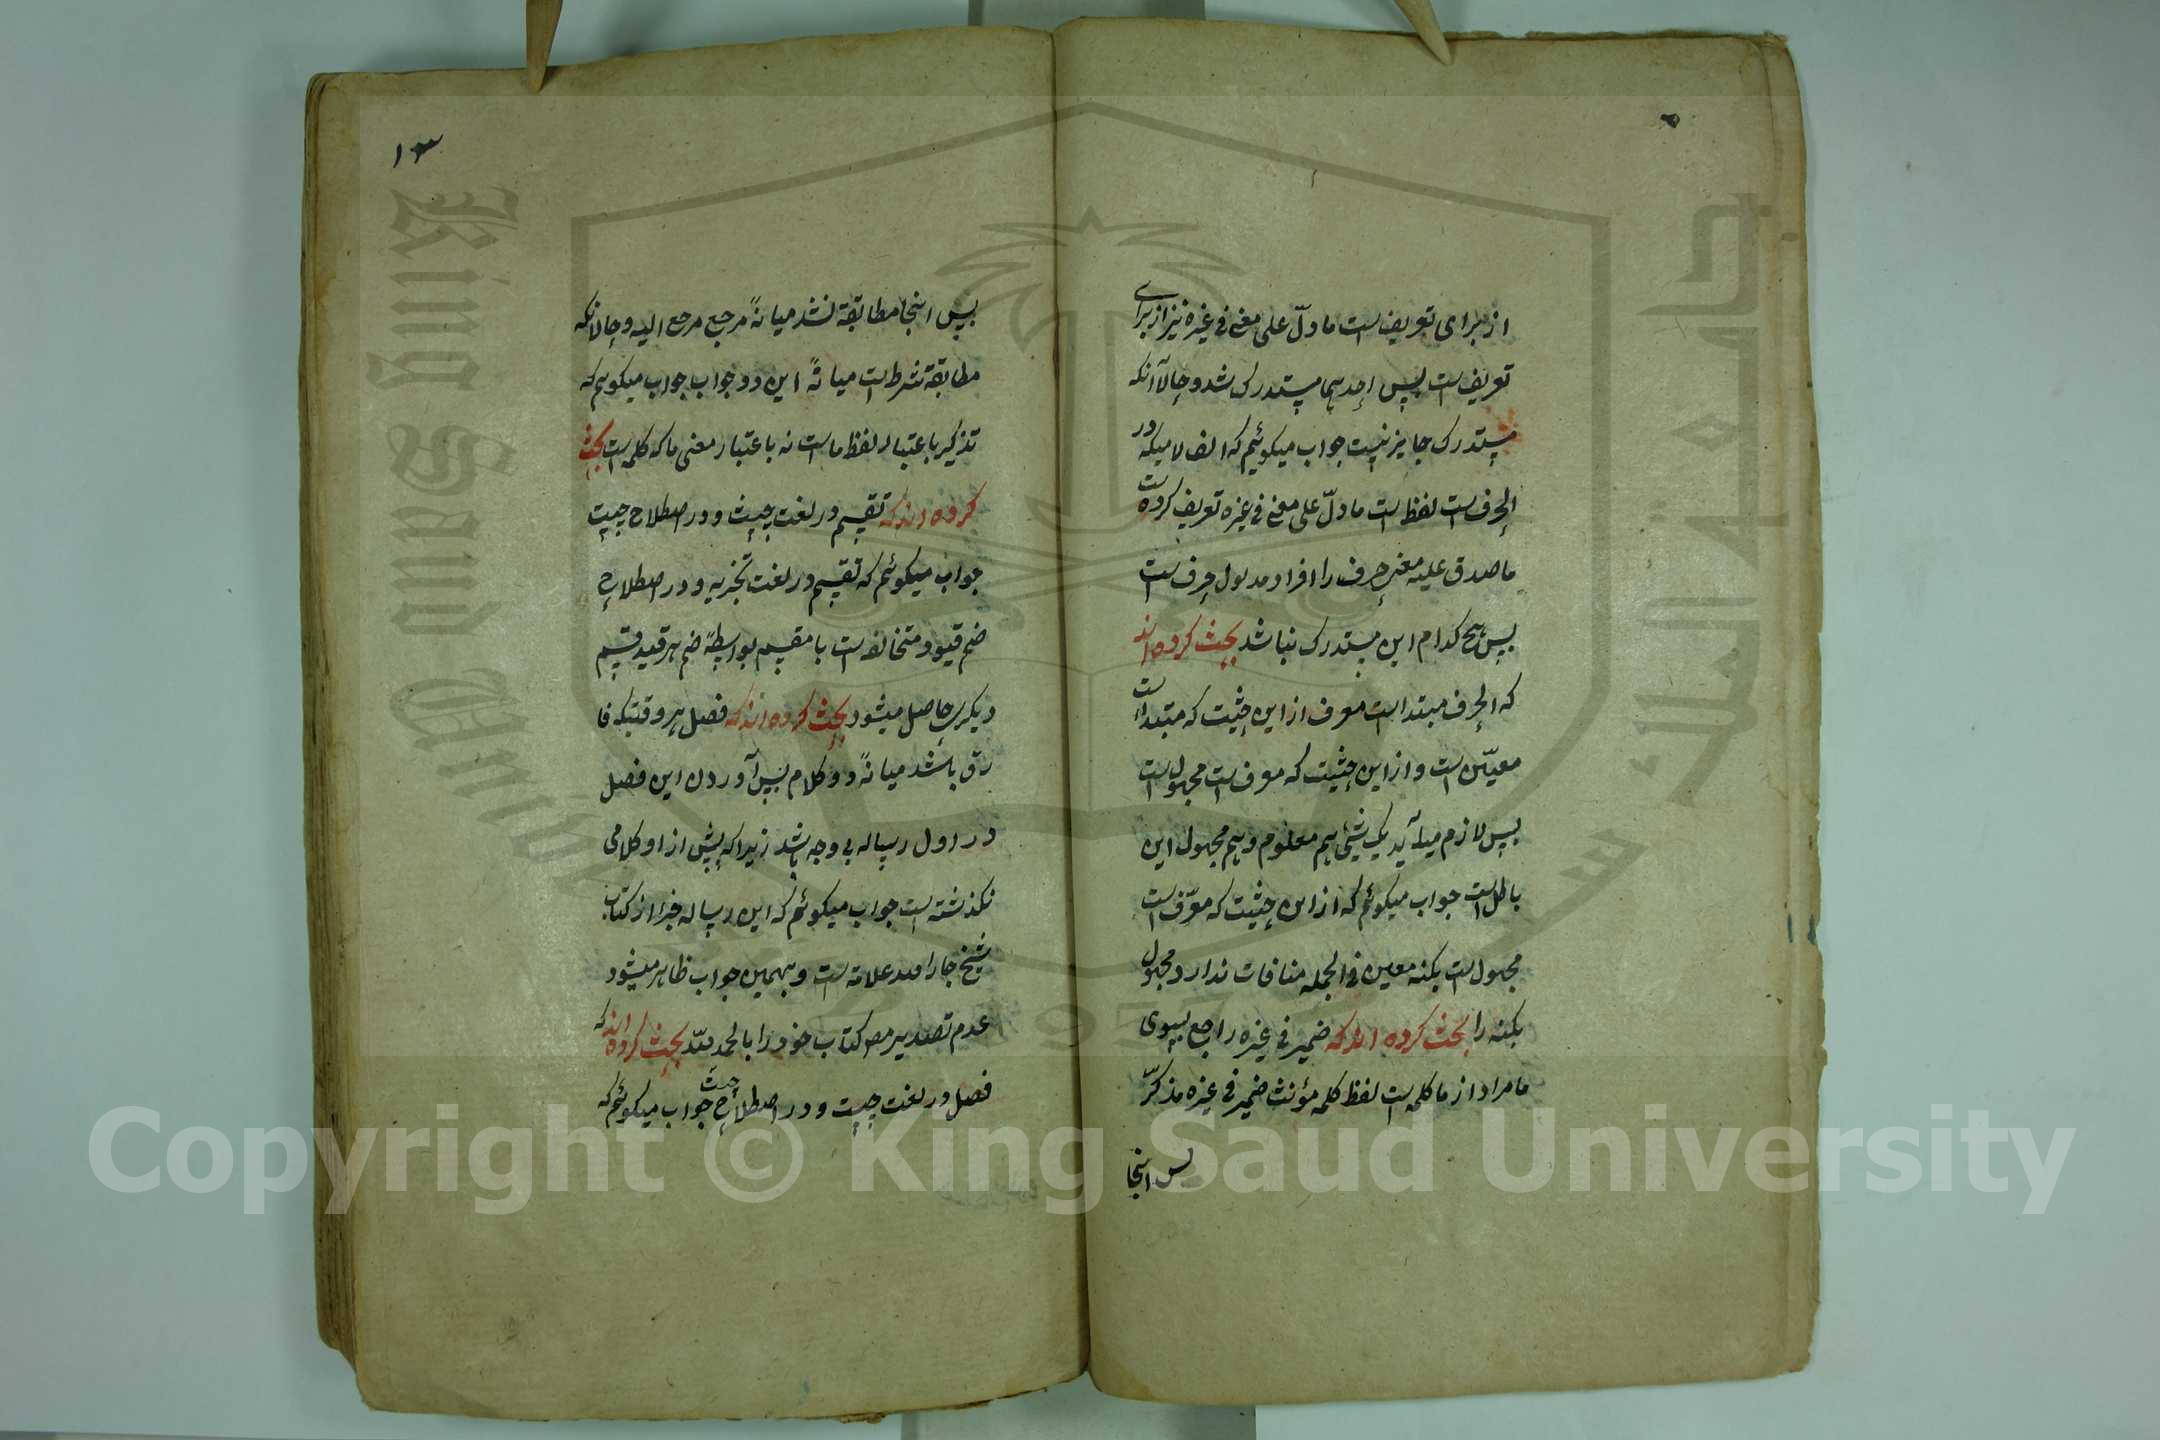 از برای تعریف است ما دلّ علی معنی فی غیره نیز از برای
تعریف است پس احدیهما مستدرک شد و حالا آنکه
مستدرک جایز نیست جواب میکوئیم که الف لامیکه در
الحرف است لفظ است ما دلّ علی معنی فی غیره تعریف کرده است
ما صدق علیه معنی حرف را افراد مدلول حرف است
پس هیچ کدام این مستدرک نباشد بحث کرده اند
که الحرف مبتدا است معرف از این حیثیت که مبتدا است
معیّن است و از این حیثیت که معرف است مجهول است
پس لازم میآید یک شیئ هم معلوم و هم مجهول این
باطل است جواب میکوئیم که از این حیثیت که معرّف است
مجهول است بکنه معین فی الجمله منافات ندارد مجهول
بکنه را بحث کرده اند که ضمیر فی غیره راجع بسوی
ما مراد از ما کلمه است لفظ کلمه مؤنث ضمیر فی غیره مذکّر
پس اینجا
١٣
پس اینجا مطابقة نشد میانهٔ مرجع مرجع الیه و حالانکه
مطابقة شرط است میانهٔ این دو جواب جواب میکویم که
تذکیر باعتبار لفظ ما است نه باعتبار معنی ما که کلمه است بحث
کرده اند که تقسیم در لغت چیست و در اصطلاح چیست
جواب میکوئیم که تقسیم در لغت تجزیه و در اصطلاح
ضم قیود متخالفه است با مقسم بواسطهٔ ضم هر قید قسیم
دیکری حاصل میشود بحث کرده اند که فصل هر وقتیکه فا
رق باشد میانهٔ دو کلام پس آوردن این فصل
در اول رساله بی وجه باشد زیراکه پیش از او کلامی
نکذشته است جواب میکوئیم که این رساله جزء از کتاب
شیخ جارالله علامة است و بهمین جواب ظاهر میشود
عدم تصدیر مص کتاب خود را بالحمد لله بحث کرده اند که
فصل در لغت چیست و در اصطلاح چیست جواب میکوئیم که
Copyright © King Saud University